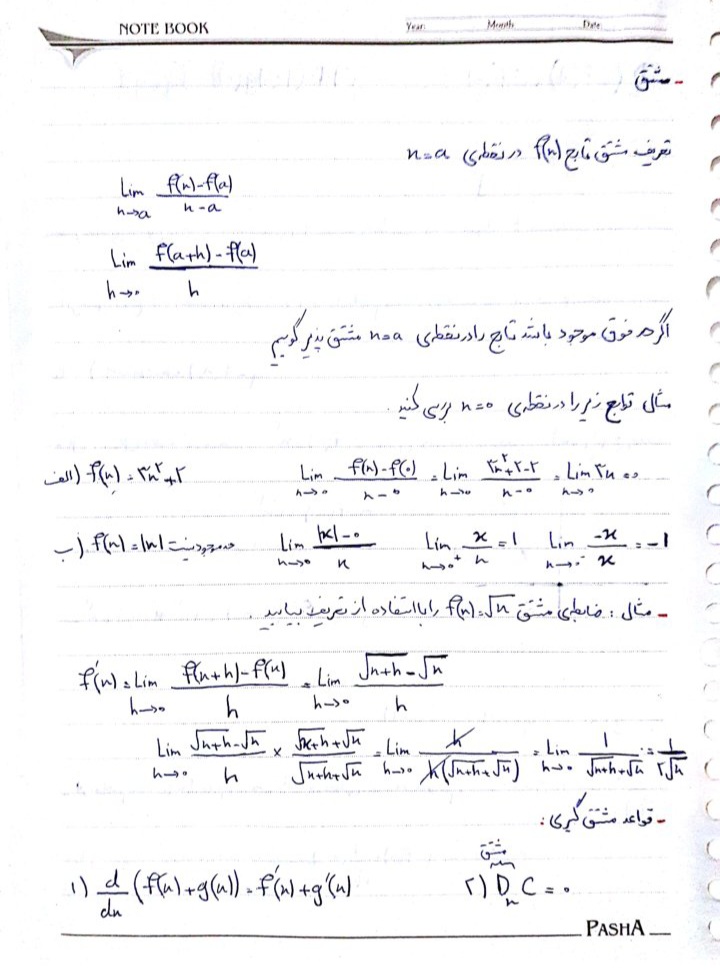 NOTE BOOK Year: Month: Date:
- مشتق
تعریف مشتق تابع f(x) در نقطه‌ی x=a
Lim x→a f(x)-f(a) / x-a
Lim h→۰ f(a+h)-f(a) / h
اگر حد فوق موجود باشد تابع را در نقطه‌ی x=a مشتق پذیر گوییم
مثال توابع زیر را در نقطه‌ی x=0 بررسی کنید.
الف) f(x)=۳x²+۲ Lim x→۰ f(x)-f(۰) / x-۰ = Lim x→۰ ۳x²+۲-۲ / x-۰ = Lim x→۰ ۳x = ۰
ب) f(x)=|x| حد موجود نیست Lim x→۰ |x|-۰ / x Lim x→۰⁺ x/x = 1 Lim x→۰⁻ -x/x = -1
- مثال: ضابطه‌ی مشتق f(x)=√x را با استفاده از تعریف بیابید.
f'(x) = Lim h→۰ f(x+h)-f(x) / h = Lim h→۰ √x+h - √x / h
Lim h→۰ √x+h - √x / h × √x+h + √x / √x+h + √x = Lim h→۰ h / h(√x+h + √x) = Lim h→۰ 1 / √x+h + √x = 1 / ۲√x
- قواعد مشتق گیری:
مشتق
۱) d/dx (f(x)+g(x)) = f'(x)+g'(x) ۲) DₓC = ۰
PASHA